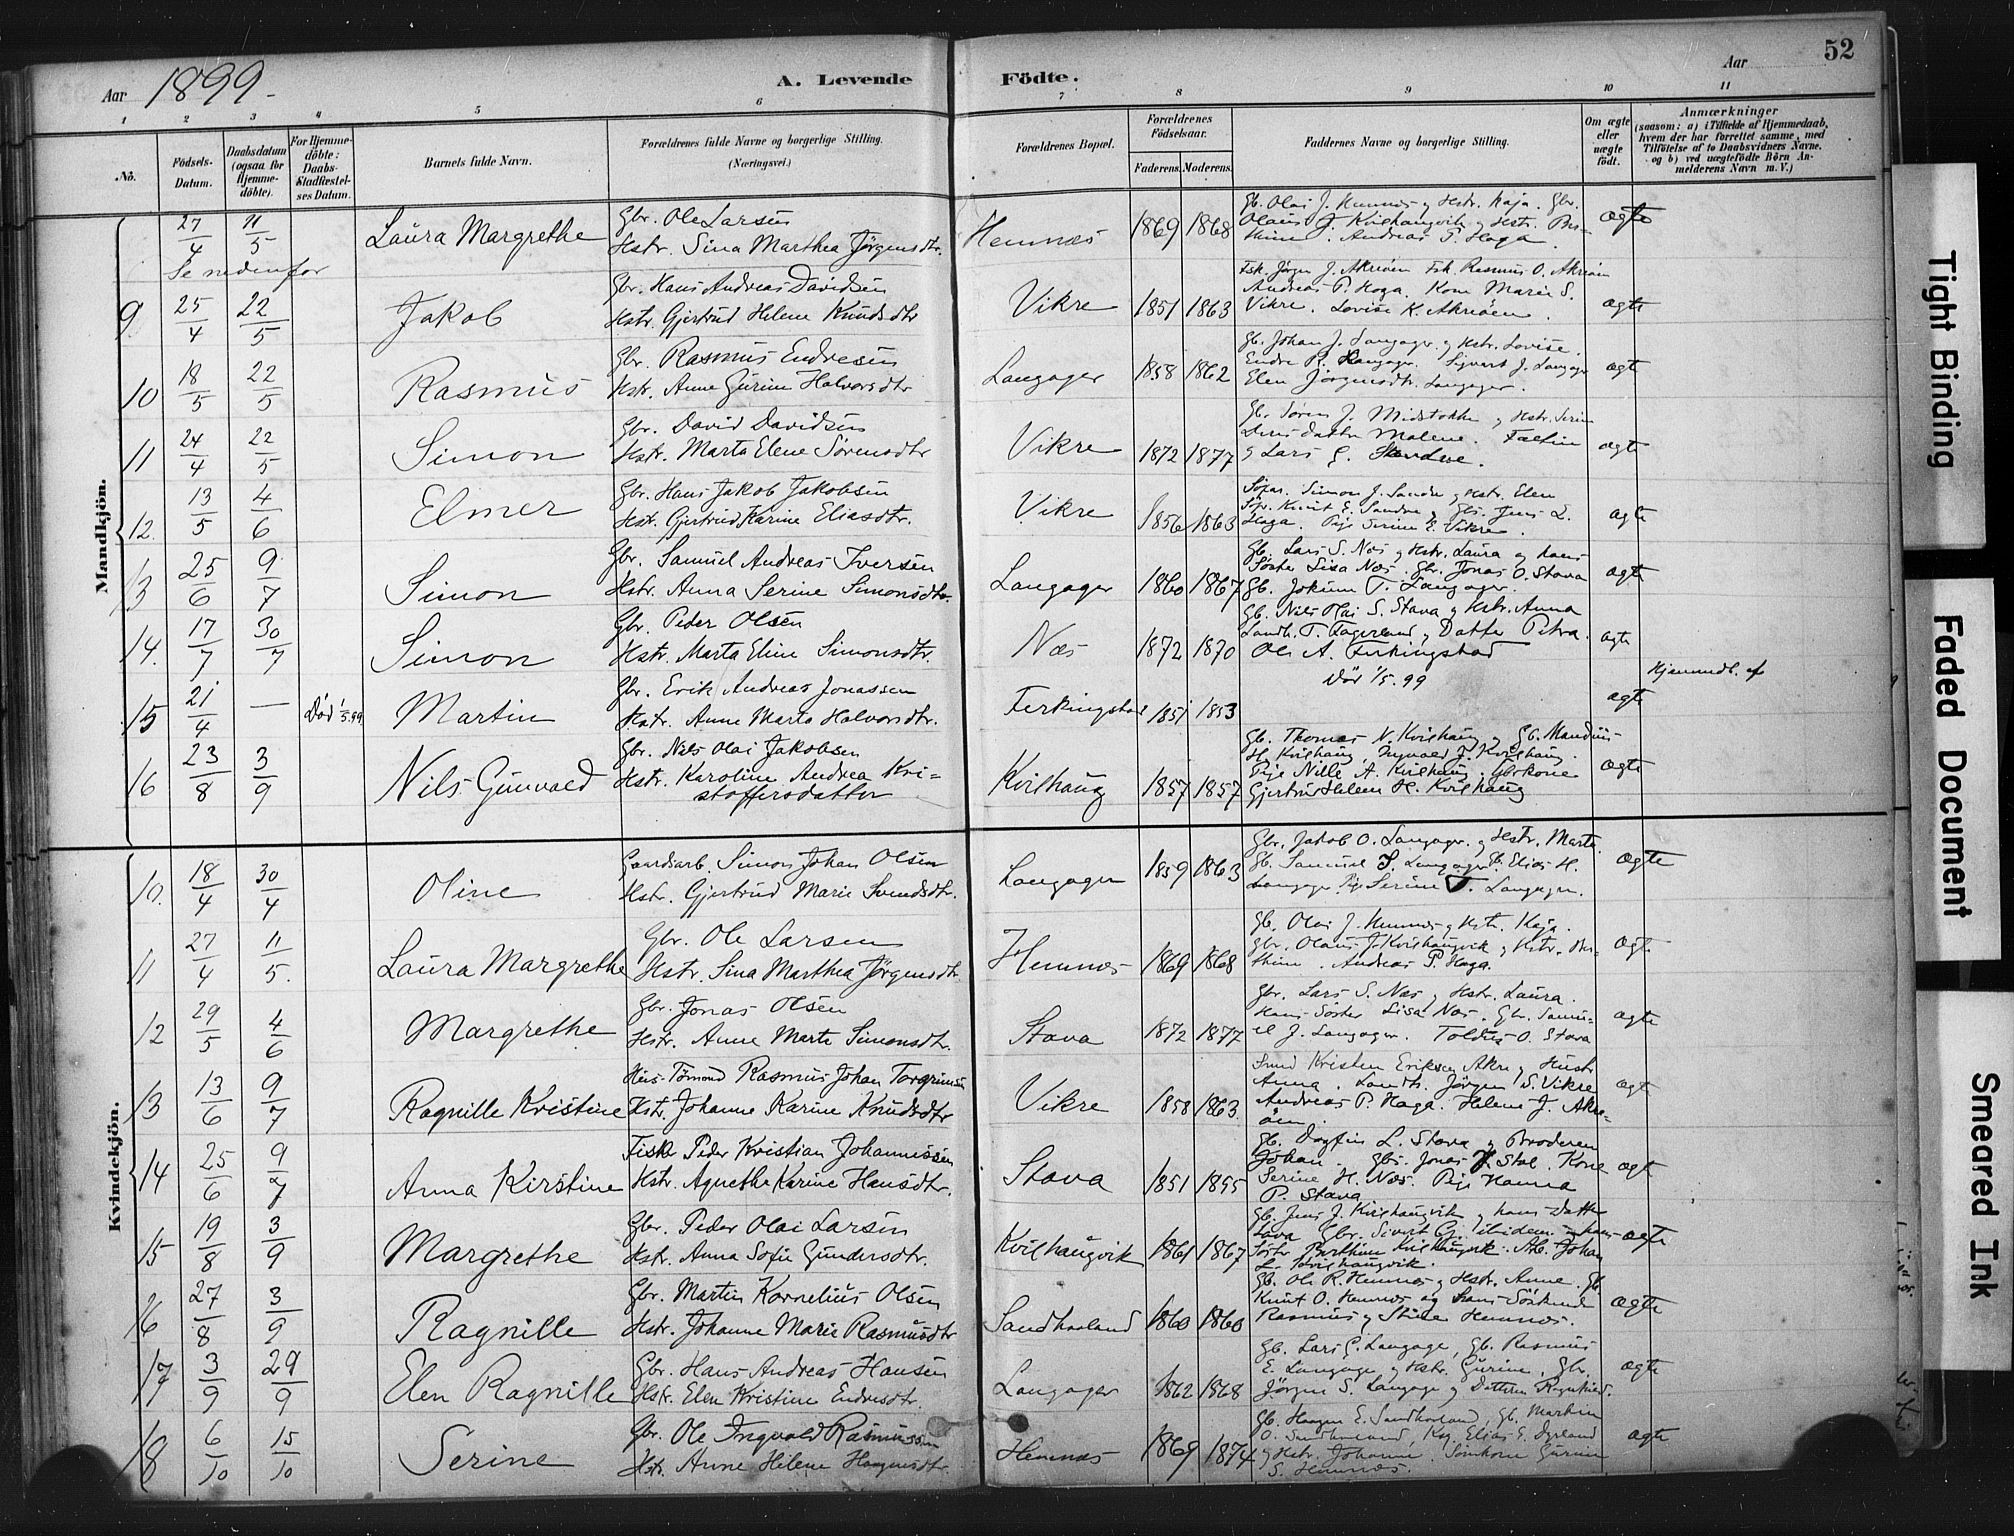 52
Aar 1899 A. Levende Födte. Aar
1 2 3 4 5 6 7 8 9 10 11
No. Födsels-Datum. Daabsdatum (ogsaa for Hjemme-döbte). For Hjemme-döbte: Daabs-Stadfæstel-ses Datum. Barnets fulde Navn. Forældrenes fulde Navne og borgerlige Stilling. (Næringsvei.) Forældrenes Bopæl. Forældrenes Födselsaar. Faderens. Moderens. Faddernes Navne og borgerlige Stilling. Om ægte eller uægte födt. Anmærkninger (saasom: a) i Tilfælde af Hjemmedaab, hvem der har forrettet samme, med Tilföielse af to Daabsvidners Navne, og b) ved uægtefödte Börn An-melderens Navn m. V.)
Mandkjön.
27/4 11/5 Laura Margrethe Gbr. Ole Larsen Hemnæs 1869 1868 Gb. Olai J. Hemnæs og Hstr. Kaja. Gbr. ægte
Se nedenfor Hstr. Sina Marthea Jørgensdtr. Olaus J. Kvilhaugvik og Hstr. Andreas P. Haga.
9. 25/4 22/5 Jakob Gbr. Hans Andreas Davidsen Vikre 1851 1863 Fsk. Jørgen J. Akreøen Fsk. Rasmus O. Akreøen ægte
Hstr. Gjertrud Helene Knudsdtr Andreas P. Haga. Kone Marie S. Vikre. Lovise K. Akreøen.
10 18/5 22/5 Rasmus Gbr. Rasmus Endresen Langager 1858 1862 Gb. Johan J. Langager og Hstr. Lovise. ægte
Hstr. Anne Gurine Halvorsdtr Endre R. Langager. Sjvert J. Langager Elen Jörgensdtr. Langager.
11 24/4 22/5 Simon Gbr. David Davidsen Vikre 1872 1877 Gb. Søren J. Midstokke og Hstr. Serine ægte
Hstr. Marta Elene Sørensdtr Datter Malene. og Lars G.
12. 13/5 4/6 Elmer Gbr. Hans Jakob Jakobsen Vikre 1856 1863 Simon J. Sandve og Hstr. Elen ægte
Hstr. Gjertrud Karine Eliasdtr. Knut E. Sandve og Gbr. Jens L. Haga. Pige Serine E. Vikre.
13 25/6 9/7 Simon Gbr. Samuel Andreas Iversen Langager 1860 1867 Gb. Lars S. Næs og Hstr. Laura og hans ægte
Hstr. Anna Serine Simonsdtr. Søster Lisa Næs. Gbr. Jonas O. Stava Gb. Jokum T. Langager.
14. 17/7 30/7 Simon Gbr. Peder Olsen Næs 1872 1870 Gb. Nils Olai S. Stava og Hstr. Anna ægte
Hstr. Marta Eline Simonsdtr. Landh. T. Fagerland og Datter Petra. Ole A. Ferkingstad
15 21/4 — Død 1/5.99 Martin Gbr. Erik Andreas Jonassen Ferkingstad 1851 1853 Död 1/5.99 ægte Hjemmedb. af
Hstr. Anne Marta Halvorsdtr.
16 23/8 3/9 Nils Gunvald Gbr. Nils Olai Jakobsen Kvilhaug 1857 1857 Gb. Thomas N. Kvilhaug og Gb. Mandius ægte
Hstr. Karoline Andrea Kri- H. Kvilhaug, Ingvald J. Kvilhaug.
stoffersdatter Pige Nille A. Kvilhaug. Gbrkone Gjertrud Helene H. Kvilhaug
Kvindekjön.
10. 18/4 30/4 Oline Gaardsarb. Simon Johan Olsen Langager 1859 1863 Gbr. Jakob O. Langager og Hstr. Marta. ægte
Hstr. Gjertrud Marie Svendsdtr. Gb. Samuel S. Langager. Elias H. Langager Pige Serine T. Langager.
11 27/4 11/5. Laura Margrethe Gbr. Ole Larsen Hemnæs 1869 1868 Gb. Olai J. Hemnæs og Hstr. Kaja. ægte
Hstr. Sina Marthea Jørgensdtr. Gbr. Olaus J. Kvilhaugvik og Hstr. Andreas P. Haga.
12 29/5 4/6 Margrethe Gbr. Jonas Olsen Stava 1872 1877 Gbr. Lars S. Næs og Hstr. Laura. ægte
Hstr. Anne Marte Simonsdtr. Hans Søster Lisa Næs. Gbr. Samu-el J. Langager. O. Stava
13 13/6 9/7 Ragnille Kristine Rasmus Johan Torgrimsen Vikre 1858 1863. Smed Kristen Eriksen Akre og Hustr ægte
Hstr. Johanne Karine Knudsdtr Anna. Landh. Jörgen S. Vikre Andreas P. Haga. Helene J. Akre-öen.
14 25/6 9/7 Anna Kirstine Fisker Peder Kristian Johannessen Stava 1851 1855 Gb. Dagfin L. Stava og Broderen ægte
Hstr. Agnethe Karine Hansdtr. Johan. Gbr. Jonas Stol. Kone Serine H. Næs. Pige Hanna P. Stava
15 19/8 3/9 Margrethe Gbr. Peder Olai Larsen Kvilhaugvik 1861 1867 Gb. Jens J. Kvilhaugvik og hans Datter ægte
Hstr. Anna Sofie Gundersdtr. Gbr. Sivert Gj. hans Søster Berthine Kvilhaugvik. Arb. Johan L. Kvilhaugvik.
16 27/8 3/9 Ragnille Gbr. Martin Kornelius Olsen Sandhaaland 1860 1860 Gb. Ole R. Hemnæs og Hstr. Anne. Gb. ægte
Hstr. Johanne Marie Rasmusdtr Knut O. Hemnæs og hans Söskende Rasmus og Stine Hemnæs.
17 3/9 29/9 Elen Ragnille Gbr. Hans Andreas Hansen Langager 1862 1868 Gb. Lars G. Langage, Gb. Rasmus ægte
Hstr. Elen Kristine Endresdtr. E. Langage og Hstr. Gurine. Gbr. Jörgen S. Langage og Datteren Ragnhild.
18 6/10 15/10 Serine Gbr. Ole Ingvald Rasmussen Hemnæs 1869 1874 Gb. Haagen E. Sandhaaland, Gb. Martin ægte
Hstr. Anne Helene Haagensdtr. O. Sandhaaland. Elias E. og Hstr. Johanne. Gurine S. Hemnæs.
Tight Binding
Faded Document
Smeared Ink